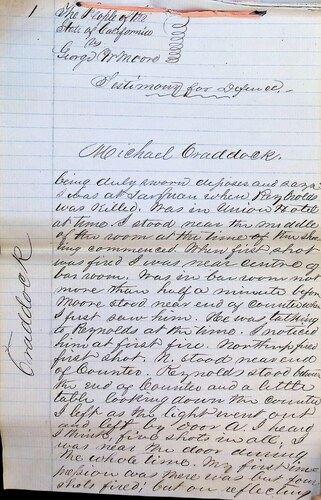 1
The People of the
State of California
vs
George W Moore
Testimony for Defence
Michael Craddock.
Being duly sworn deposes and says
I was at when Reynolds
was killed. Was in Union Hotel
at time. I stood near the middle
of the room at the time of the shoot
ing commenced. When first shot
was fired I was near centre of
bar room. Was in bar room not
more than half a minute before
Moore stood near end of Counter when
I first saw him. He was talking
to Reynolds at the time. I noticed
him at first fire. Northrup fired
first shot. N. stood near end
of Counter. Reynolds stood between
the end of Counter and a little
table looking down the Counter
I left as the light went out
and left by door A. I heard
I think, five shots in all; I
was near the door during
the whole time. My first im
pression was there was but four
shots fired; but on reflecting
Craddock